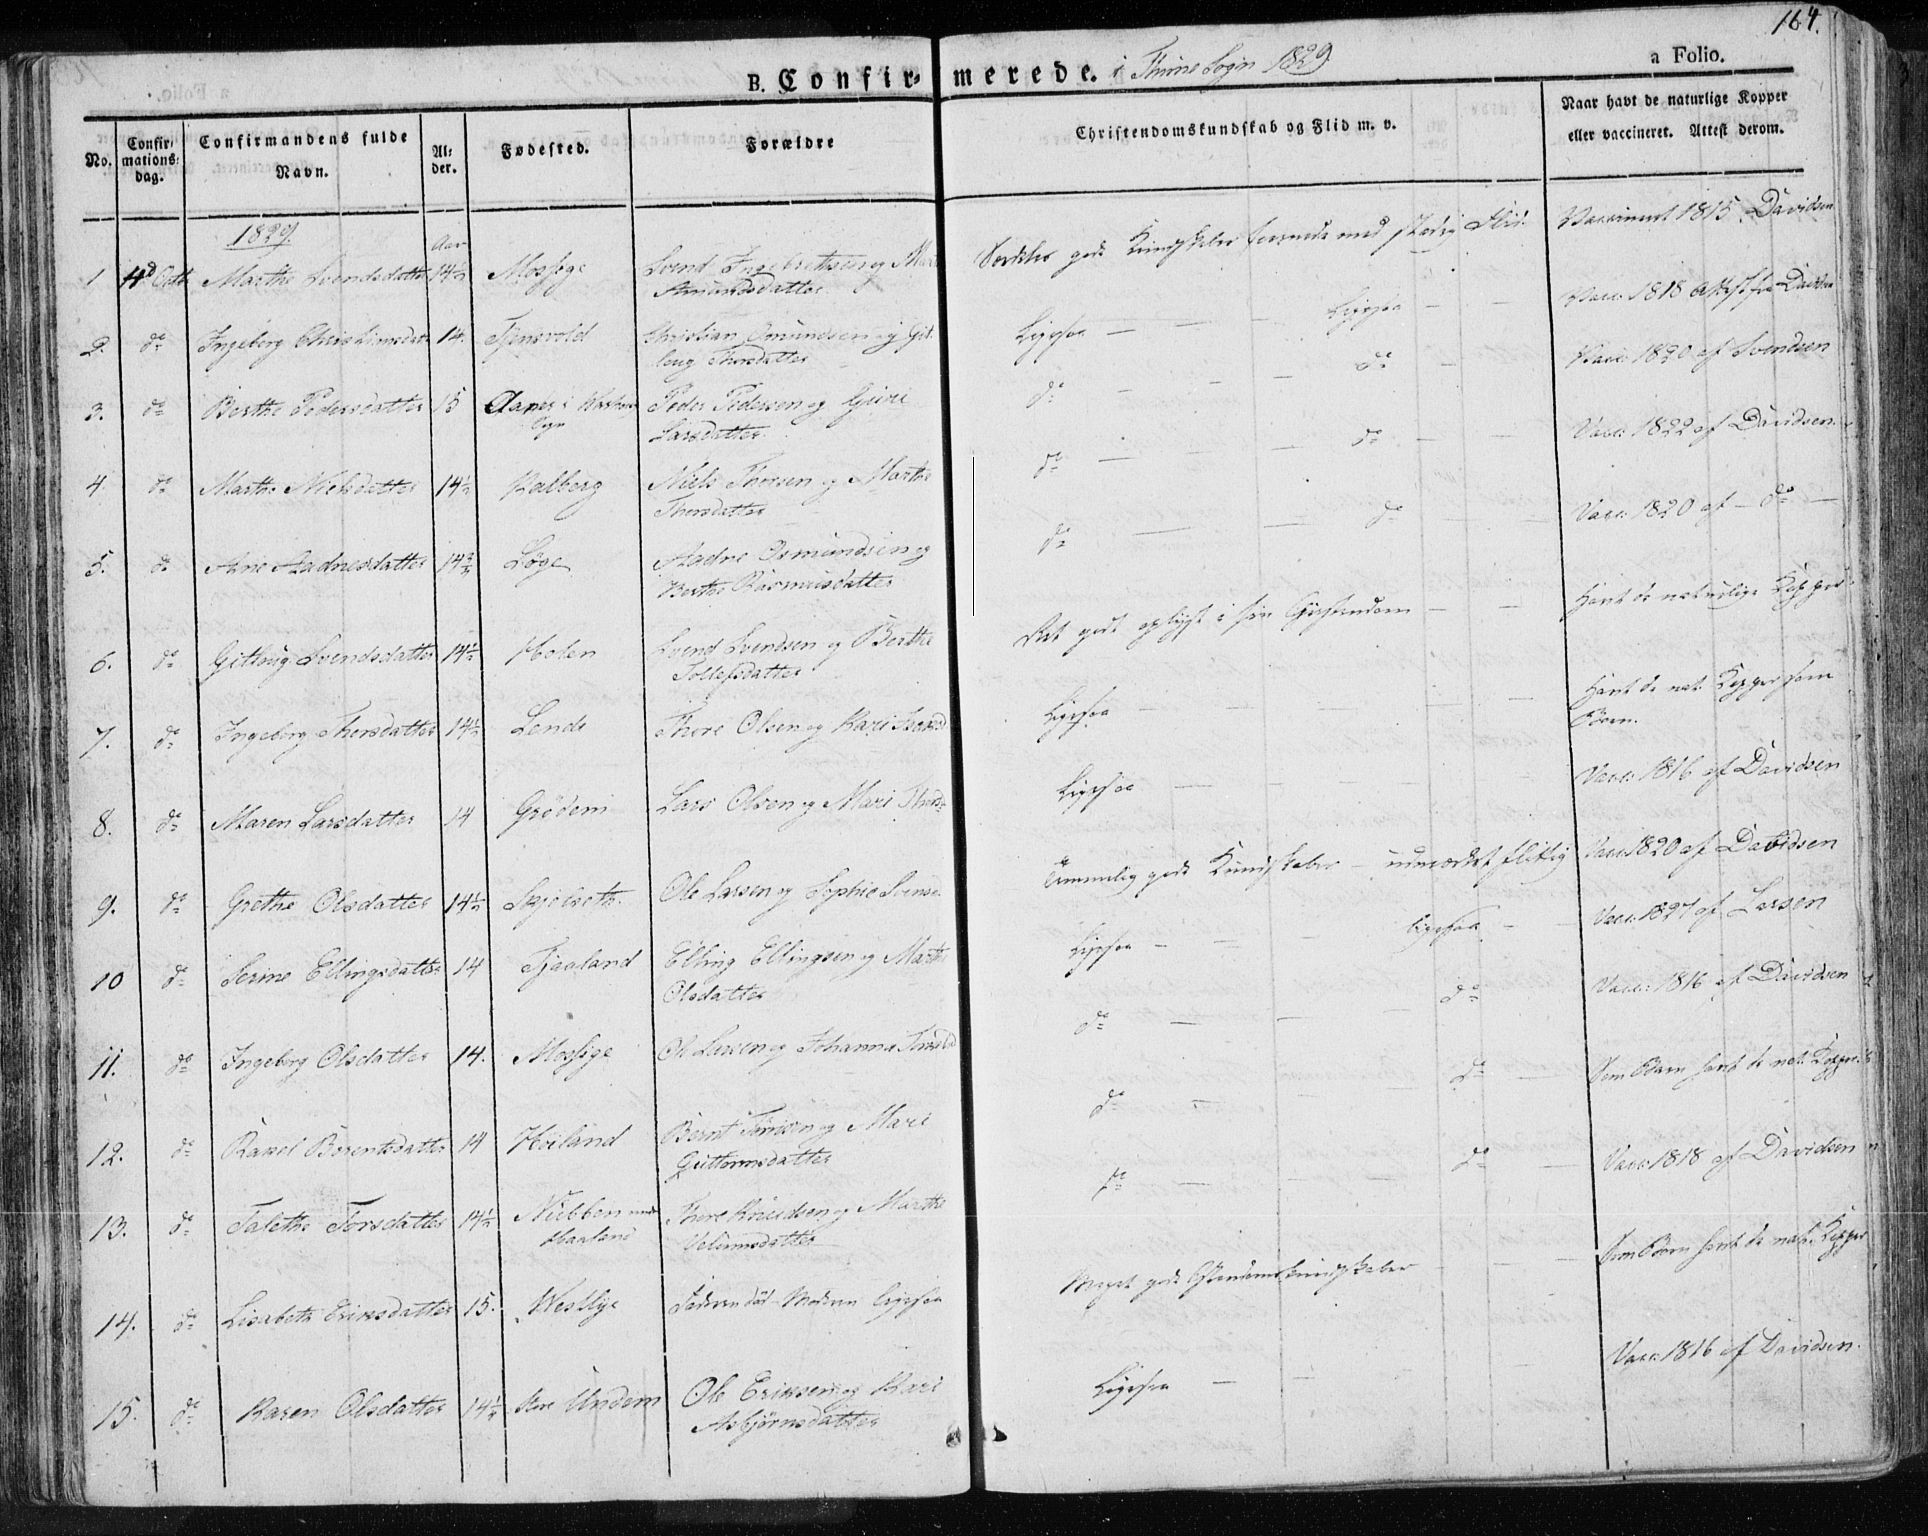 164.
B. Confir- merede. i Thime Sogn 1829 a Folio.
No. Confir- mations- dag. Confirmandens fulde Navn. Al- der. Fødested. Forældre Christendomskundskab og Flid m. v. Naar havt de naturlige Kopper eller vaccineret. Attest derom.
1829. Aar
1 4d Octb Marthe Svendsdatter 14½ Mossige Svend Ingebretsen og Mari Særdeles gode Kundskaber forenede med stadig Flid. Vaccineret 1815. Davidsen
Amundsdatter
2. do Ingeborg Christiansdatr 14. Tjensvold Christian Omundsen og Git- Ligesaa — — — Ligesaa — — Vacc: 1818 Attest fra Davidsen
loug Thorsdatter
3. do Berthe Pedersdatter 15 Aanes i Peder Pedersen og Gjuri do — — — do — Vacc: 1820 af Svendsen
Sogn Larsdatter
4. do Marthe Nielsdatter 14½ Kalberg Niels Thorsen og Marthe do — — — do — — Vacc: 1822 af Davidsen.
Thorsdatter
5. do Ane Aadnesdatter 14½ Løge Aadne Osmundsen og do — — do — — Vacc: 1820 af — do —
Berthe Rasmusdatter
6. do Gitloug Svendsdatter 14½ Holen Svend Svendsen og Berthe Ret godt oplyst i sin Christendom — — Havt de naturlige Kopper
Tollefsdatter
7. do Ingeborg Thorsdatter 14½ Lende Thore Olsen og Kari Ligesaa — — — — Havt de nat: Kopper som
Barn.
8. do Maren Larsdatter 14 Grødem Lars Olsen og Mari Thorsd Ligesaa — — — Vacc: 1816 af Davidsen
9. do Grethe Olsdatter 14½ Skjelseth. Ole Larsen og Sophie Svensd Temmelig gode Kundskaber — udmærket flittig Vacc: 1820 af Davidsen
10 do Serine Ellingsdatter 14 Tjaaland Elling Ellingsen og Marthe Ligesaa — — — ligesaa — — Vacc: 1827 af Larsen
Olsdatter
11. do Ingeborg Olsdatter 14. Mossige Ole Larsen og Johanna do — — — do — Vacc: 1816 af Davidsen
12. do Rakel Berentsdatter 14 Hoiland Bernt Tønisen og Mari do — — do — Som Barn havt de nat: Kopper
Guttormsdatter
13. do Talethe Torsdatter 14½ Nubben under Thore Knudsen og Marthe do — — do — Vacc: 1818 af Davidsen
Haaland Velumsdatter
14. do Lisabeth Eriksdatter 15. Westlye Faderen død — Moderen ligesaa Meget gode Christendomskundskaber — — Som Barn havt de nat: Kopper
15. do Karen Olsdatter 14½ Store Undem Ole Eriksen og Kari Ligesaa — — — Vacc: 1816 af Davidsen.
Asbjørnsdatter